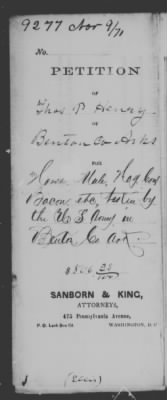 9277 Nov 9/71
No.
PETITION
OF
Thos P. Henry
OF
Benton Co Arks
FOR
Horse, Mule, Hog, Corn
Bacon etc, taken by
the U S Army in
Benton Co Ark
$806 25/100
SANBORN & KING,
ATTORNEYS,
475 Pennsylvania Avenue,
P. O. Lock Box 64 WASHINGTON, D. C.